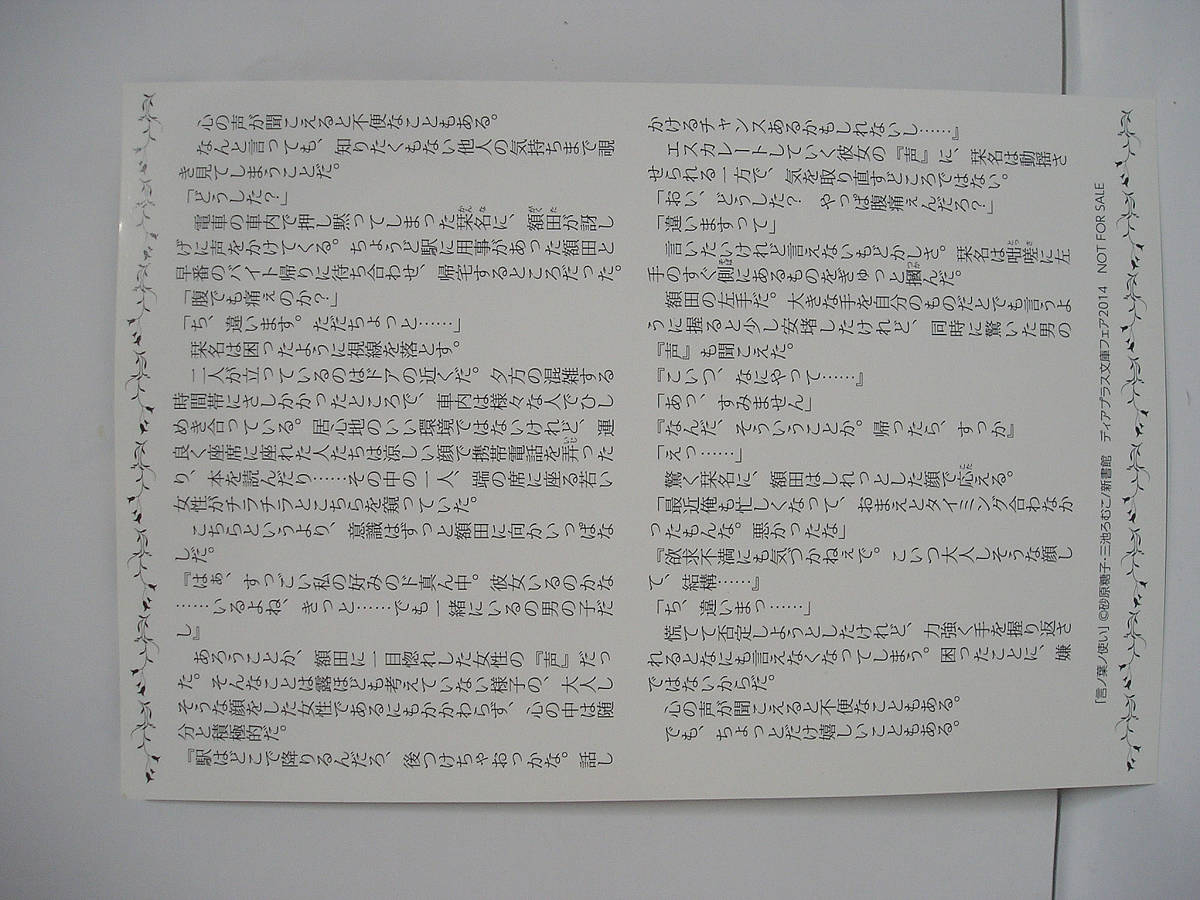 心の声が聞こえると不便なこともある。
なんと言っても、知りたくもない他人の気持ちまで覗
き見てしまうことだ。
「どうした？」
電車の車内で押し黙ってしまった栞名に、額田が訝し
げに声をかけてくる。ちょうど駅に用事があった額田と
早番のバイト帰りに待ち合わせ、帰宅するところだった。
「腹でも痛えのか？」
「ち、違います。ただちょっと……」
栞名は困ったように視線を落とす。
二人が立っているのはドアの近くだ。夕方の混雑する
時間帯にさしかかったところで、車内は様々な人でひし
めき合っている。居心地のいい環境ではないけれど、運
良く座席に座れた人たちは涼しい顔で携帯電話を弄った
り、本を読んだり……その中の一人、端の席に座る若い
女性がチラチラとこちらを窺っていた。
こちらというより、意識はずっと額田に向かいっぱな
しだ。
『はぁ、すっごい私の好みのド真ん中。彼女いるのかな
……いるよね、きっと……でも一緒にいるの男の子だ
し』
あろうことか、額田に一目惚れした女性の『声』だっ
た。そんなことは露ほども考えていない様子の、大人し
そうな顔をした女性であるにもかかわらず、心の中は随
分と積極的だ。
『駅はどこで降りるんだろ、後つけちゃおっかな。話し
かけるチャンスあるかもしれないし……』
エスカレートしていく彼女の『声』に、栞名は動揺さ
せられる一方で、気を取り直すどころではない。
「おい、どうした？　やっぱ腹痛えんだろ？」
「違いますって」
言いたいけれど言えないもどかしさ。栞名は咄嗟に左
手のすぐ側にあるものをぎゅっと摑んだ。
額田の左手だ。大きな手を自分のものだとでも言うよ
うに握ると少し安堵したけれど、同時に驚いた男の
『声』も聞こえた。
『こいつ、なにやって……』
「あっ、すみません」
『なんだ、そういうことか。帰ったら、すっか』
「えっ……」
驚く栞名に、額田はしれっとした顔で応える。
「最近俺も忙しくなって、おまえとタイミング合わなか
ったもんな。悪かったな」
『欲求不満にも気づかねぇで。こいつ大人しそうな顔し
て、結構……』
「ち、違いまっ……」
慌てて否定しようとしたけれど、力強く手を握り返さ
れるとなにも言えなくなってしまう。困ったことに、嫌
ではないからだ。
心の声が聞こえると不便なこともある。
でも、ちょっとだけ嬉しいこともある。
「言ノ葉ノ使い」©砂原糖子・三池ろむこ/新書館　ディアプラス文庫フェア2014　NOT FOR SALE